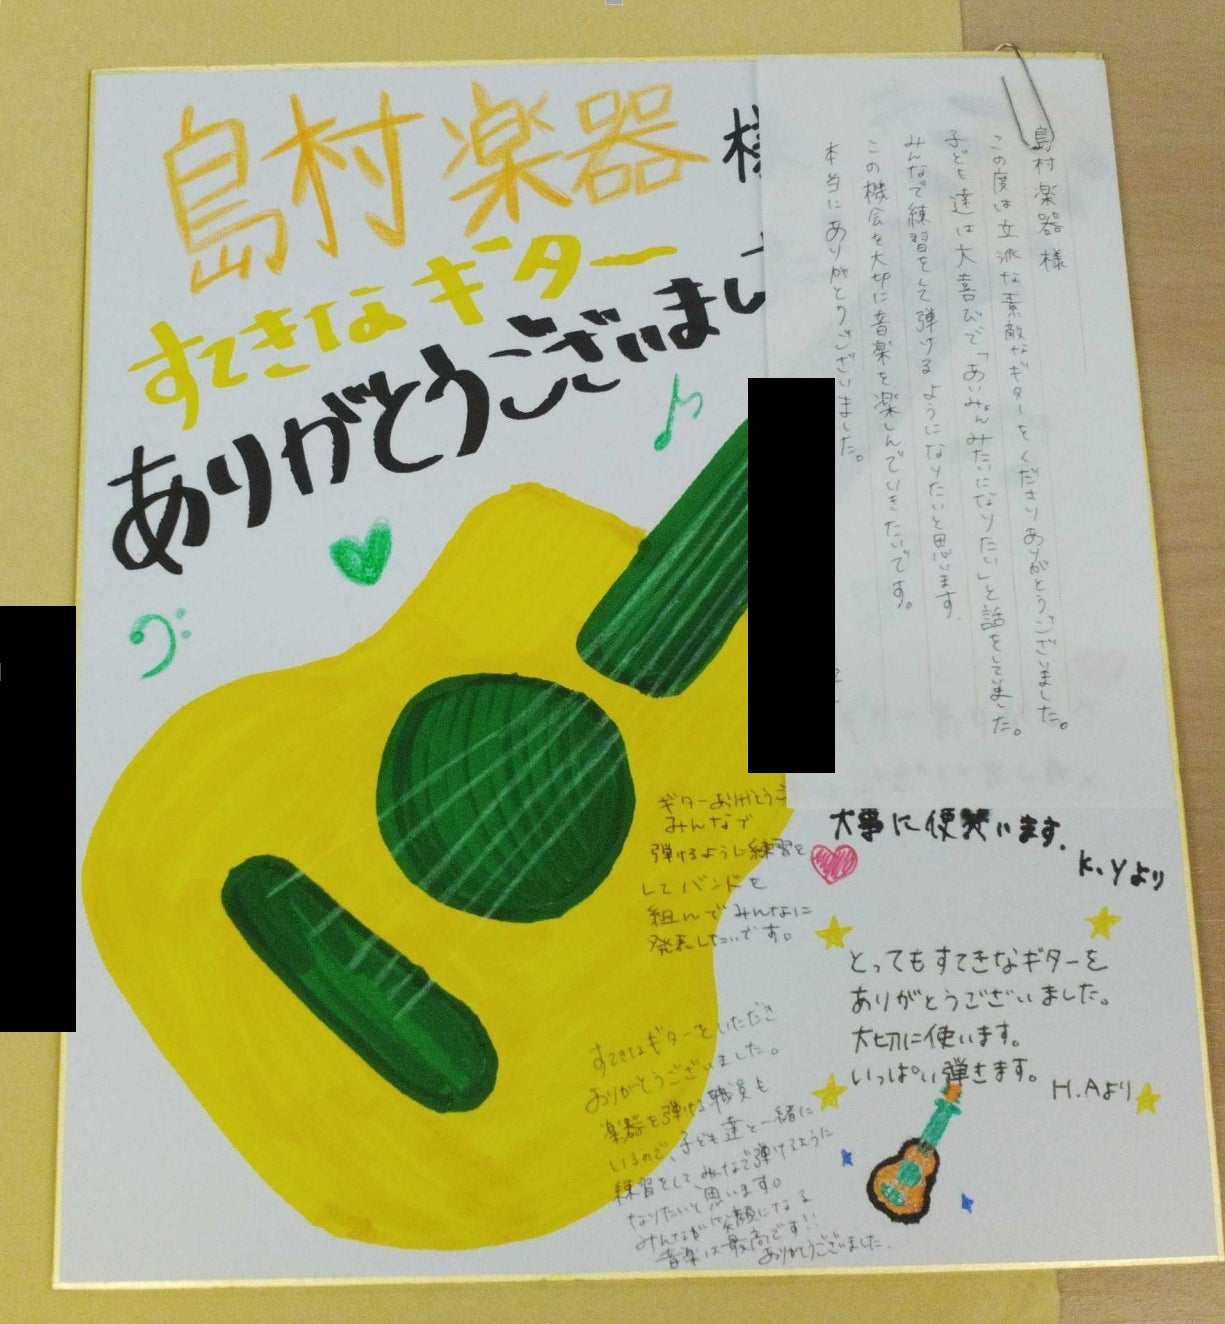 島村楽器 様
すてきなギター
ありがとうございまし
島村楽器様
この度は立派な素敵なギターをくださりありがとうございました。
子ども達は大喜びで「あいみょんみたいになりたい」と話をしていました。
みんなで練習をして弾けるようになりたいと思います。
この機会を大切に音楽を楽しんでいきたいです。
本当にありがとうございました。
ギターありがとうご
みんなで
弾けるように練習を
してバンドを
組んでみんなに
発表したいです。
大事に使います。
K.Yより
とってもすてきなギターを
ありがとうございました。
大切に使います。
いっぱい弾きます。
H.Aより
すてきなギターをいただき
ありがとうございました。
楽器を弾ける職員も
いるので、子ども達と一緒に
練習をして、みんなで弾けるように
なりたいと思います。
みんなが笑顔になる
音楽は最高です!!
ありがとうございました。